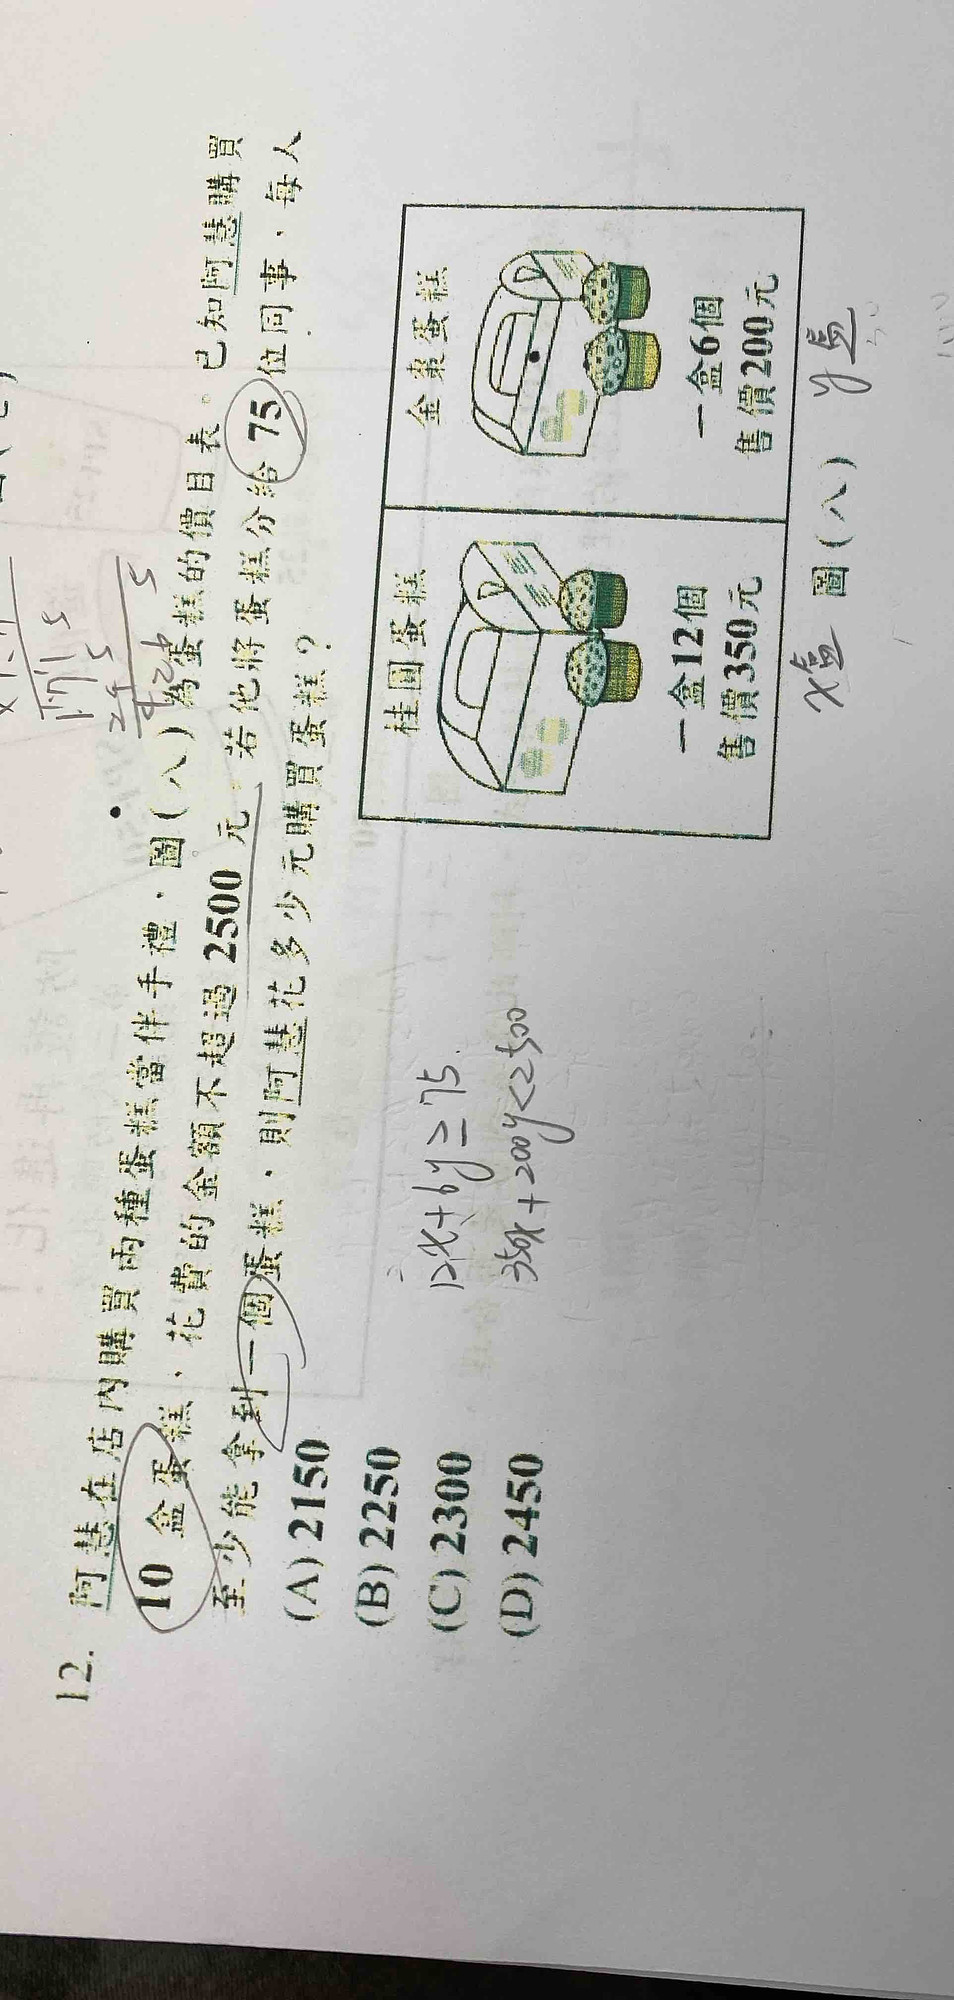 12. 阿慧在店內購買兩種蛋糕當伴手禮，圖(八)為蛋糕的價目表。已知阿慧購買
10 盒蛋糕，花費的金額不超過 2500 元。若他將蛋糕分給 75 位同事，每人
至少能拿到一個蛋糕，則阿慧花多少元購買蛋糕？
(A) 2150
(B) 2250
(C) 2300
(D) 2450
12x+6y≥75
350x+200y<2500
桂圓蛋糕
一盒12個
售價350元
金棗蛋糕
一盒6個
售價200元
x盒
圖(八)
y盒